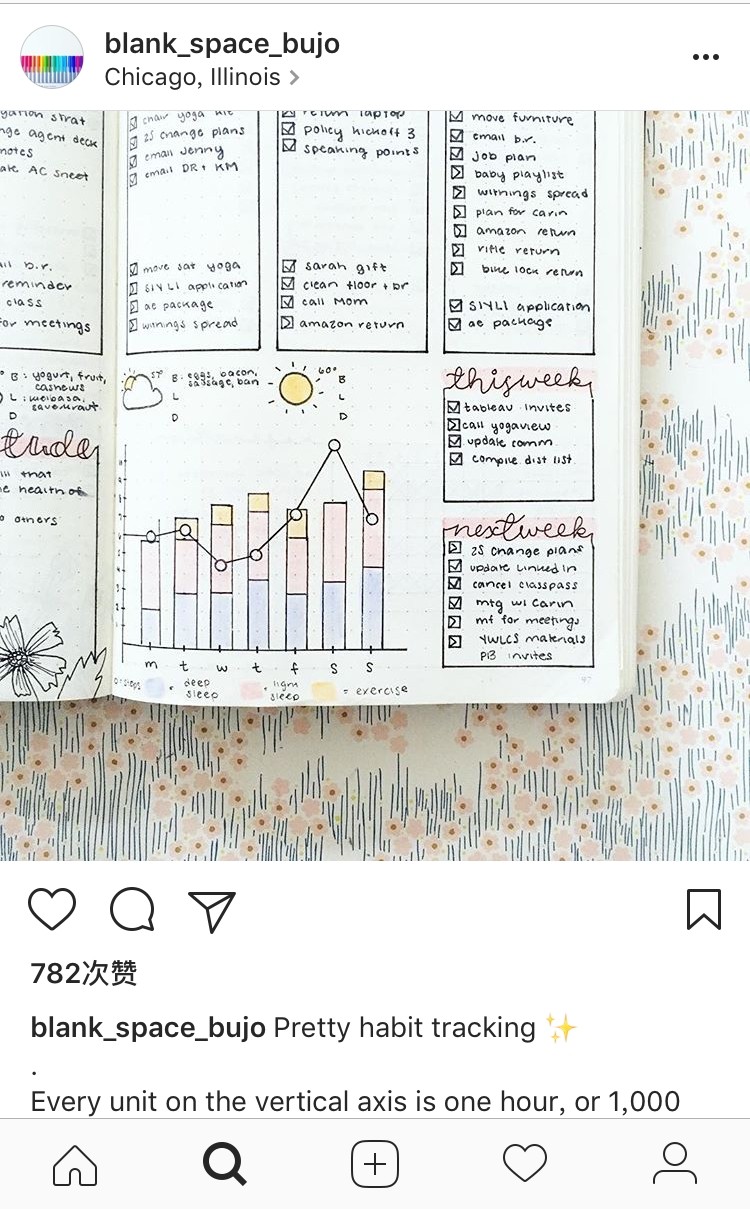 blank_space_bujo
Chicago, Illinois
strat
agent deck
notes
AC sheet
b.r.
reminder
class
for meetings
B: yogurt, fruit,
cashews
L:
sauerkraut
D
that
health of
others
chair yoga
25 change plans
email Jenny
email DR + KM
move sat yoga
SIYLI application
ae package
withings spread
57°
B: eggs, bacon,
sausage,
L
D
return laptop
policy kickoff 3
speaking points
sarah gift
clean floor + br
call Mom
amazon return
60°
B
L
D
move furniture
email b.r.
job plan
baby playlist
withings spread
plan for carin
amazon return
rifle return
bike lock return
SIYLI application
ae package
this week
tableau invites
call yogaview
update comm.
compile dist list
next week
25 change plans
update linked in
cancel classpass
mtg w/ Carin
mf for meetings
YWLCS materials
PB invites
m t w t f s s
= steps = deep sleep = light sleep = exercise
97
782次赞
blank_space_bujo Pretty habit tracking ✨
.
Every unit on the vertical axis is one hour, or 1,000